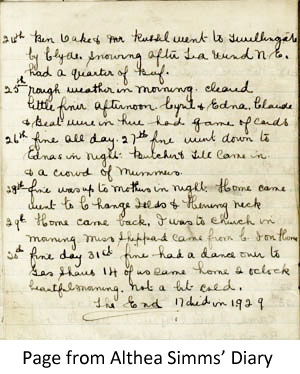 24th Ken Oake & Mr Russel went to Twillingate
by Clyde. snowing after Tea wind N.E.
had a quarter of Beef.
25th rough weather in morning. cleared
little finer afternoon Cyril & Edna, Claude
& Beat were in here had game of cards
26th fine all day. 27th fine went down to
Ednas in night. Butcher Till came in
& a crowd of Mummers.
28th fine was up to Mothers in night. Home came
went to Change Islds & Herring Neck
29th Home came back. I was to Church in
morning Miss Sheppard came from
30th fine day 31st fine had a dance over to
14 of us came home 2 oclock
beatful morning. not a bit cold.
The End 17 died in 1929
Page from Althea Simms' Diary